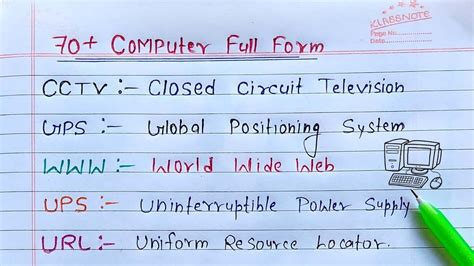 KLASSNOTE
Page No.
Date.
70+ Computer Full Form
CCTV :- Closed Circuit Television
GPS :- Global Positioning System
WWW :- World Wide Web
UPS :- Uninterruptible Power Supply
URL :- Uniform Resource Locator.